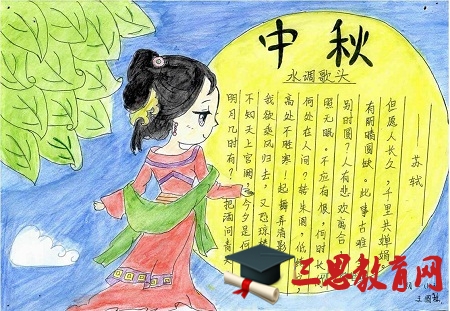 中秋
水调歌头
明月几时有？把酒问青
不知天上宫阙，今夕是何
我欲乘风归去，又恐琼楼
高处不胜寒！起舞弄清影
何处在人间？转朱阁，低
照无眠。不应有恨，何时长
别时圆？人有悲欢离合
有阴晴圆缺。此事古难
但愿人长久，千里共婵娟。
苏轼
三思教育网